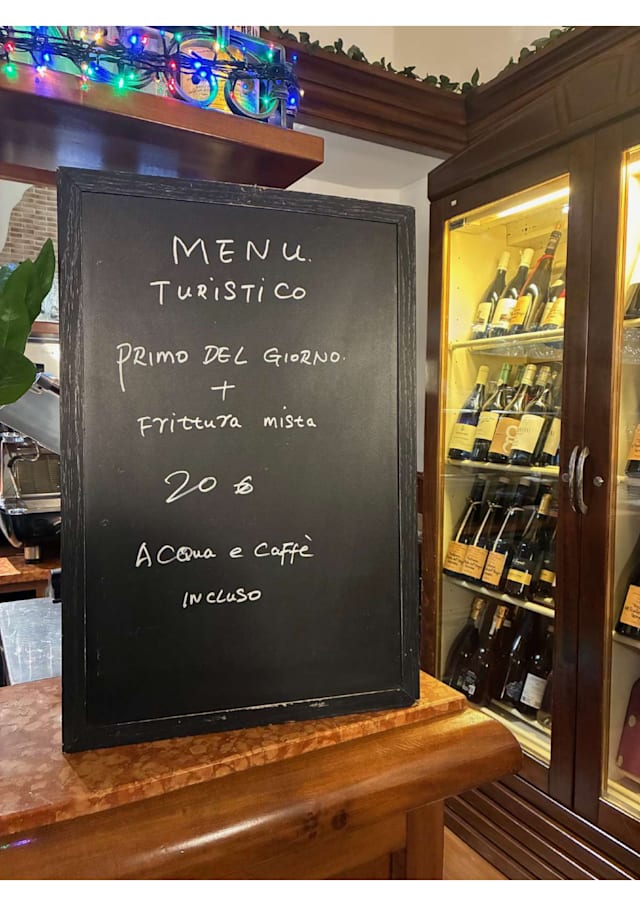 MENU.
TURISTICO
PRIMO DEL GIORNO.
+
Frittura mista
20 €
ACQua e Caffè
INCLUSO